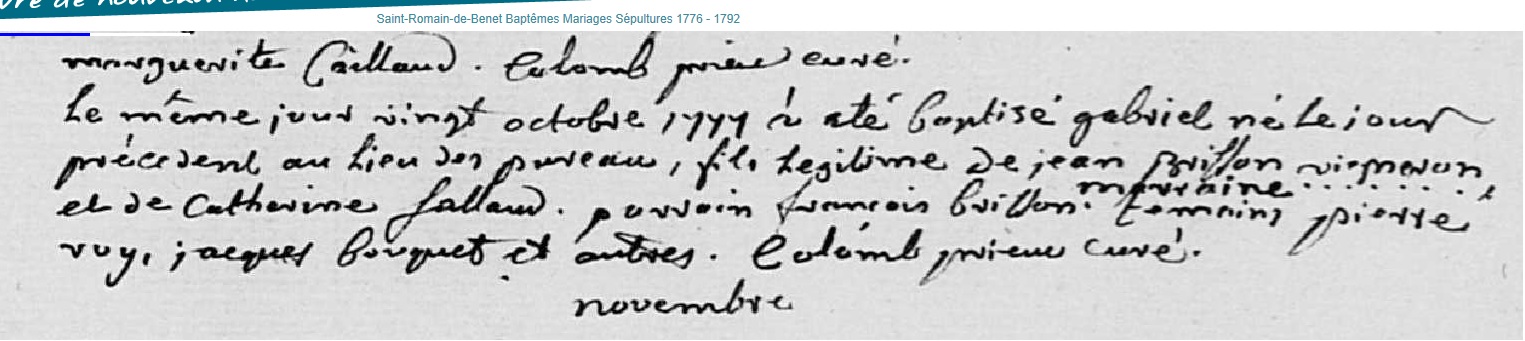 Saint-Romain-de-Benet Baptêmes Mariages Sépultures 1776 - 1792
marguerite Caillaud. Colomb prieur curé.
Le même jour vingt octobre 1777 à été baptisé gabriel né le jour
précedent au lieu des pureau, fils legitime de jean Brisson vigneron
et de Catherine fallaud. parrain françois brisson. marraine ........
temoins pierre
roy, jacques bouquet et autres. Colomb prieur curé.
novembre